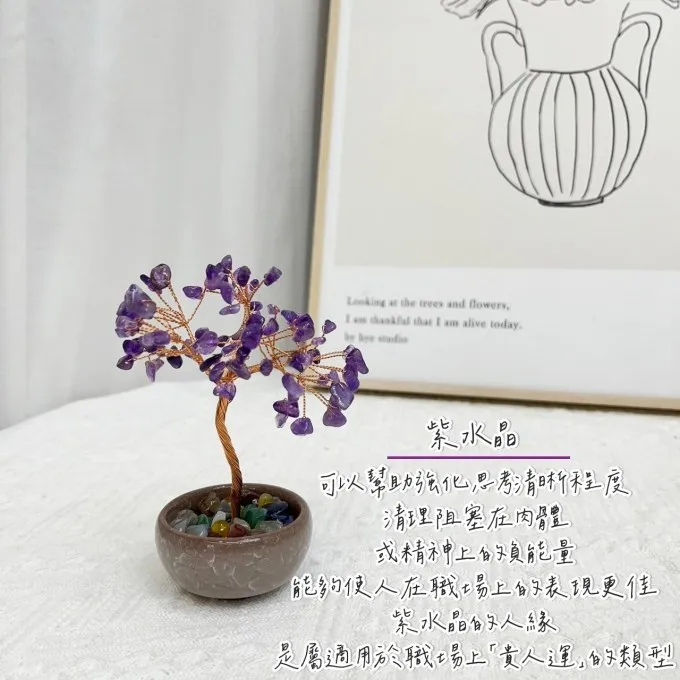 Looking at the trees and flowers,
I am thankful that I am alive today.
by hye studio
紫水晶
可以幫助強化思考清晰程度
清理阻塞在肉體
或精神上的負能量
能夠使人在職場上的表現更佳
紫水晶的人緣
是屬適用於職場上「貴人運」的類型